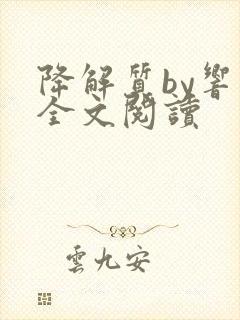 降解質by響
全文閱讀
雲九安